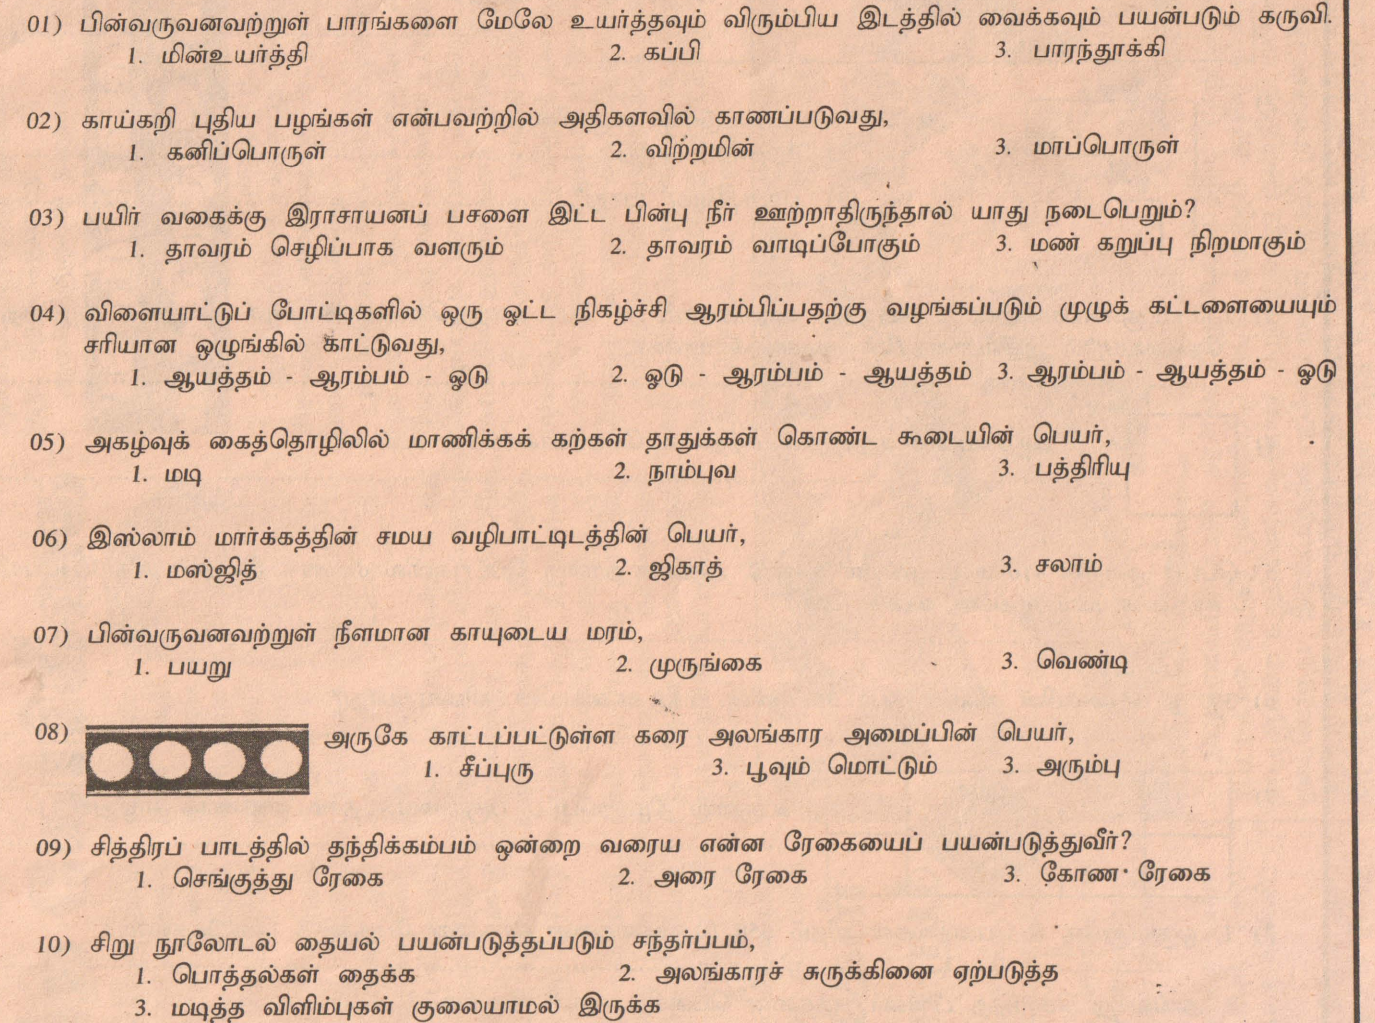 01) பின்வருவனவற்றுள் பாரங்களை மேலே உயர்த்தவும் விரும்பிய இடத்தில் வைக்கவும் பயன்படும் கருவி.
1. மின்உயர்த்தி 2. கப்பி 3. பாரந்தூக்கி
02) காய்கறி புதிய பழங்கள் என்பவற்றில் அதிகளவில் காணப்படுவது,
1. கனிப்பொருள் 2. விற்றமின் 3. மாப்பொருள்
03) பயிர் வகைக்கு இராசாயனப் பசளை இட்ட பின்பு நீர் ஊற்றாதிருந்தால் யாது நடைபெறும்?
1. தாவரம் செழிப்பாக வளரும் 2. தாவரம் வாடிப்போகும் 3. மண் கறுப்பு நிறமாகும்
04) விளையாட்டுப் போட்டிகளில் ஒரு ஓட்ட நிகழ்ச்சி ஆரம்பிப்பதற்கு வழங்கப்படும் முழுக் கட்டளையையும்
சரியான ஒழுங்கில் காட்டுவது,
1. ஆயத்தம் - ஆரம்பம் - ஓடு 2. ஓடு - ஆரம்பம் - ஆயத்தம் 3. ஆரம்பம் - ஆயத்தம் - ஓடு
05) அகழ்வுக் கைத்தொழிலில் மாணிக்கக் கற்கள் தாதுக்கள் கொண்ட கூடையின் பெயர்,
1. மடி 2. நாம்புவ 3. பத்திரியு
06) இஸ்லாம் மார்க்கத்தின் சமய வழிபாட்டிடத்தின் பெயர்,
1. மஸ்ஜித் 2. ஜிகாத் 3. சலாம்
07) பின்வருவனவற்றுள் நீளமான காயுடைய மரம்,
1. பயறு 2. முருங்கை 3. வெண்டி
08) அருகே காட்டப்பட்டுள்ள கரை அலங்கார அமைப்பின் பெயர்,
1. சீப்புரு 3. பூவும் மொட்டும் 3. அரும்பு
09) சித்திரப் பாடத்தில் தந்திக்கம்பம் ஒன்றை வரைய என்ன ரேகையைப் பயன்படுத்துவீர்?
1. செங்குத்து ரேகை 2. அரை ரேகை 3. கோண ரேகை
10) சிறு நூலோடல் தையல் பயன்படுத்தப்படும் சந்தர்ப்பம்,
1. பொத்தல்கள் தைக்க 2. அலங்காரச் சுருக்கினை ஏற்படுத்த
3. மடித்த விளிம்புகள் குலையாமல் இருக்க